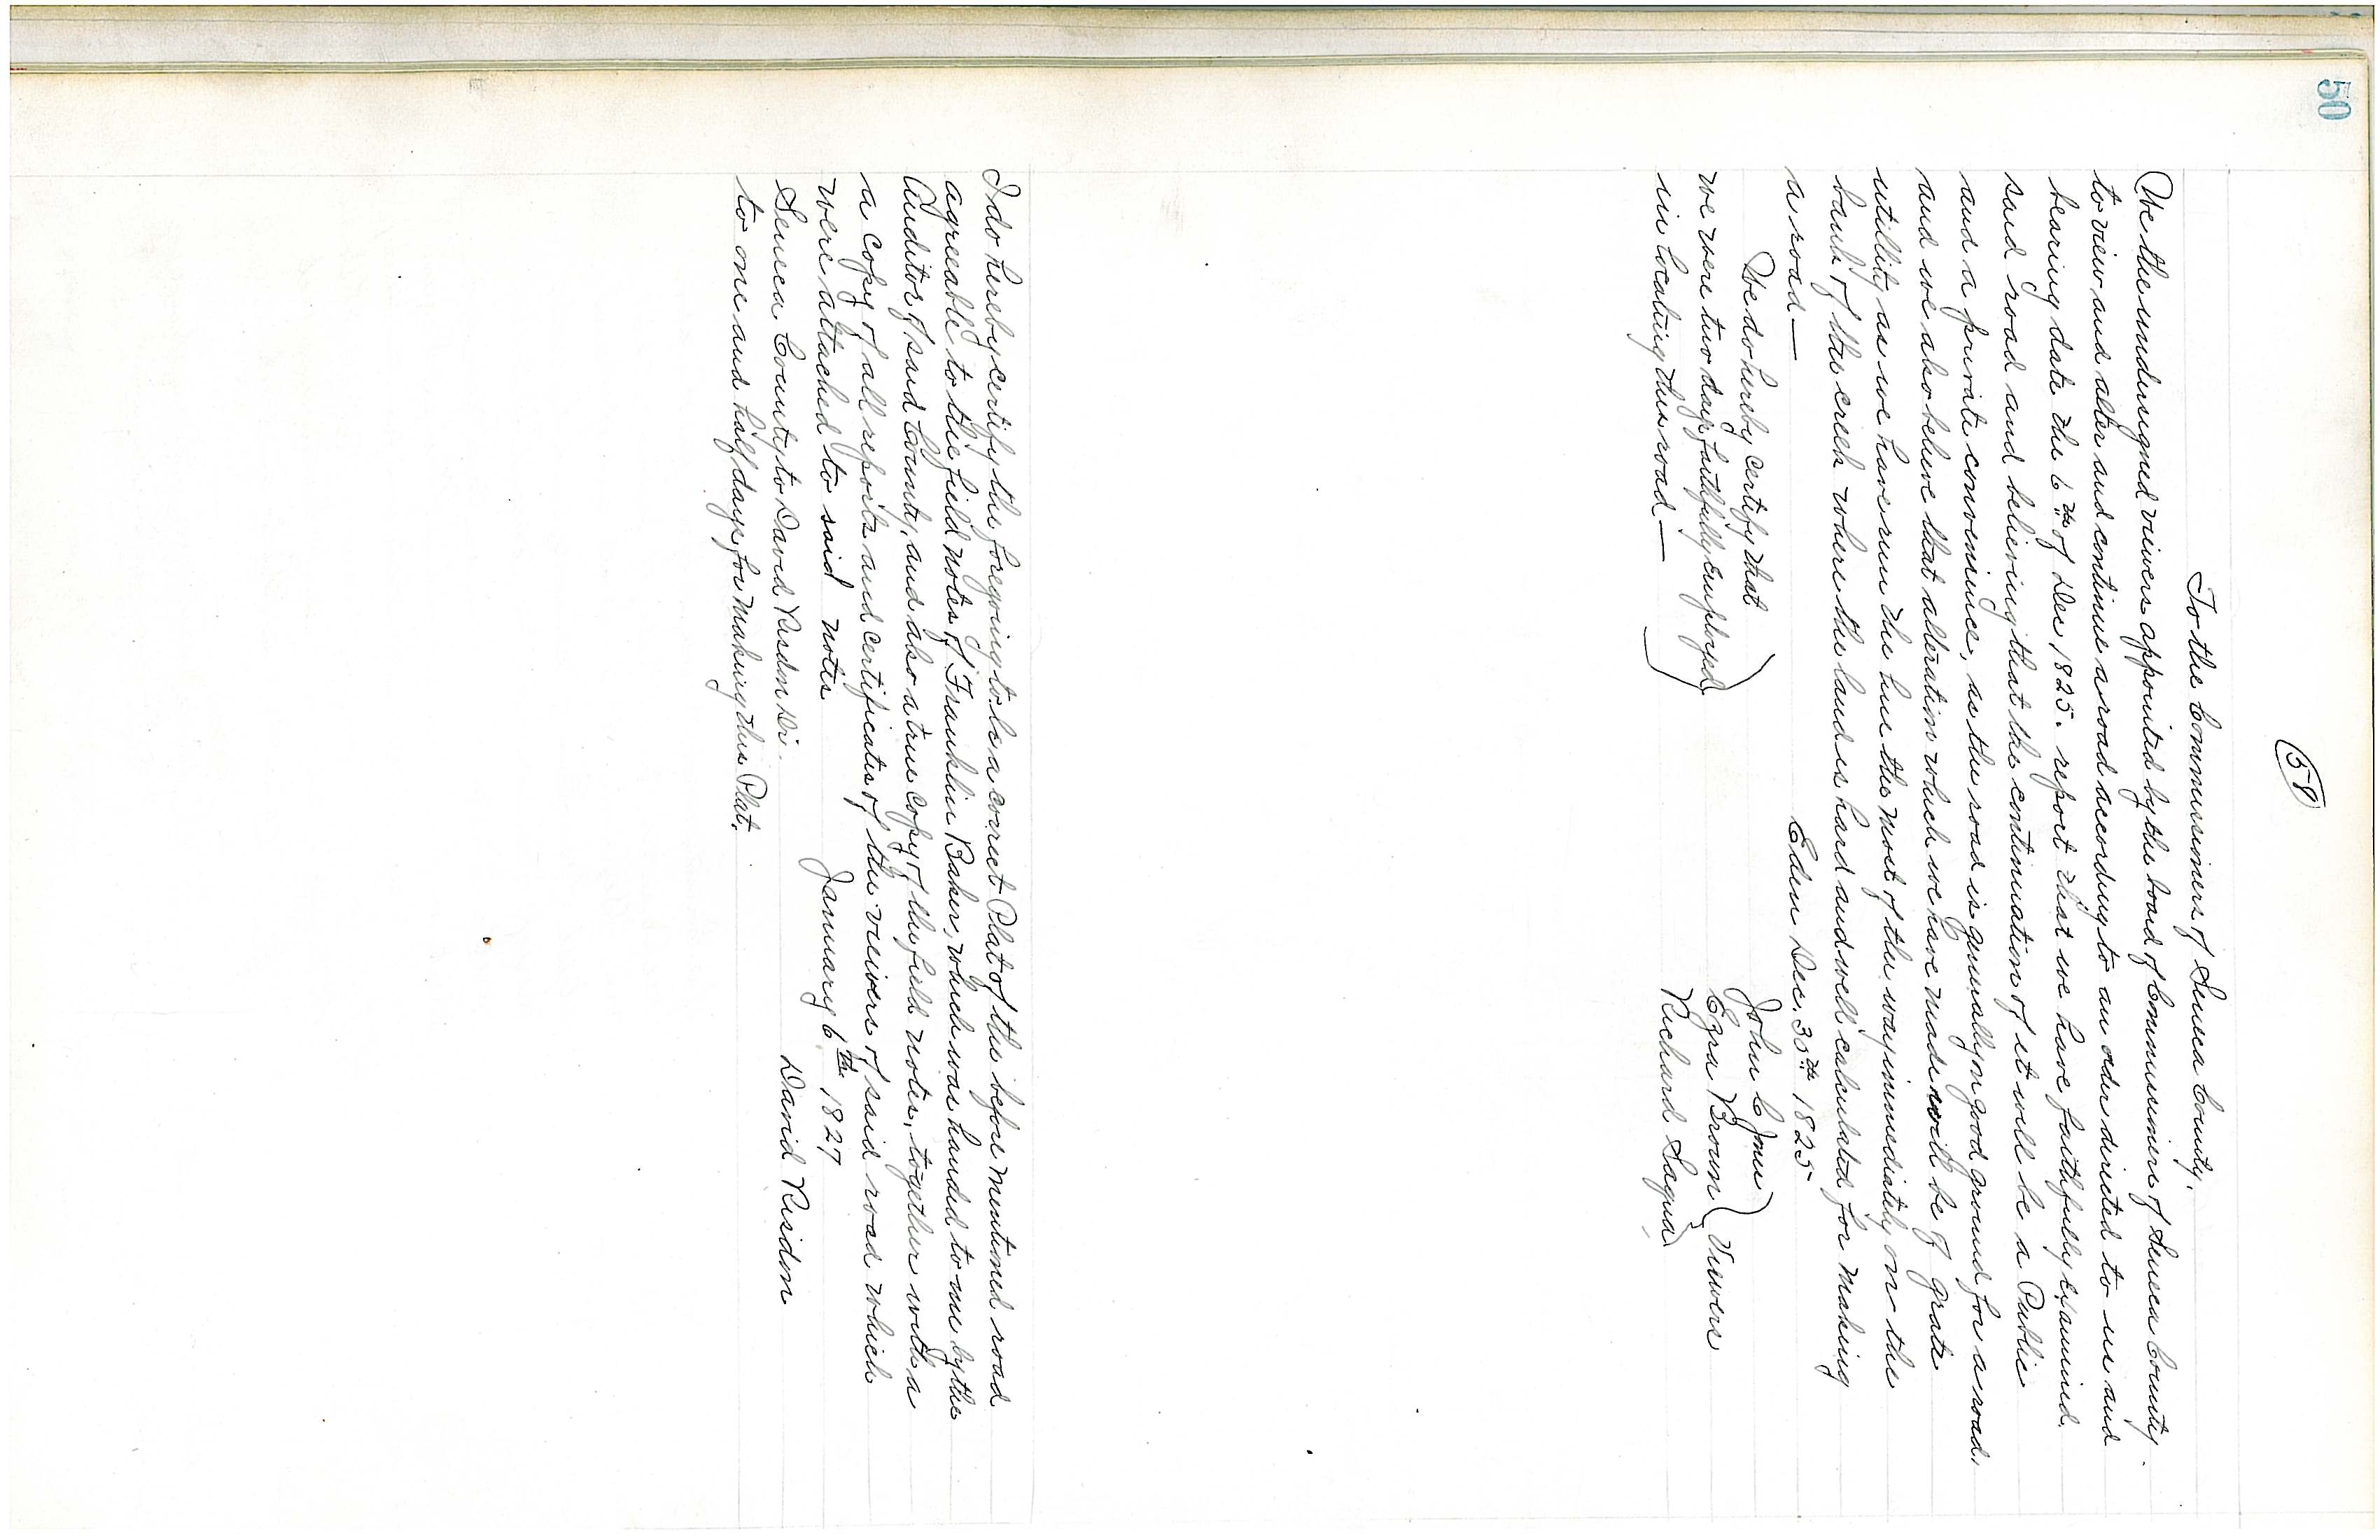 50
58
To the Commissioners of Seneca County.
We the undersigned viewers appointed by the board of Commissioners of Seneca County
to view and alter and continue a road according to an order directed to us and
bearing date the 6th of Dec, 1825. report that we have faithfully examined
said road and believing that the continuation of it will be a Public
and a private convenience, as the road is generally on good ground for a road,
and we also believe that alteration which we have made will be of grate
utillity as we have run the line the most of the way immediately on the
bank of the creek where the land is hard and well calculated for making
a road—
Eden Dec. 30th 1825
We do hereby certify that
we were two days faithfully employed
in locating this road—
John C Jones
Ezra Brown
Viewers
Richard Sagua
I do hereby certify the foregoing to be a correct Plat of the before mentioned road
agreeable to the field notes of Franklin Baker, which was handed to me by the
Auditor of said County, and also a true copy of the field notes, together with a
a copy of all reports and certificates of the viewers of said road which
were attached to said notes
January 6th 1827
Seneca County to David Risdon Dr.
David Risdon
to one and half days for making this Plat.